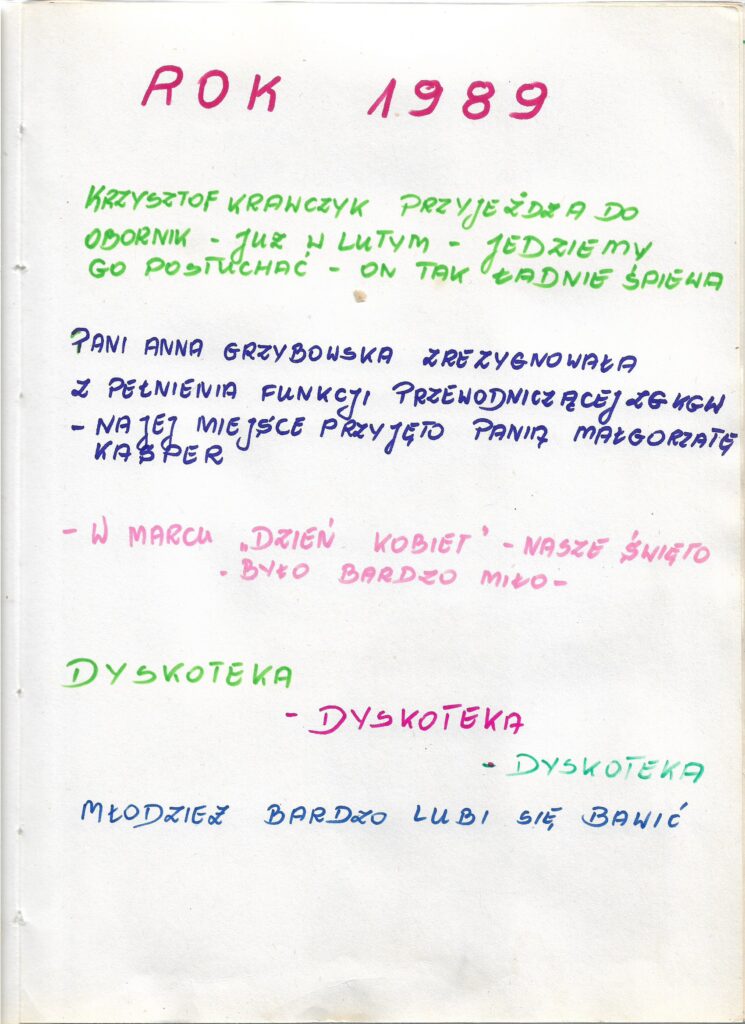 ROK 1989
KRZYSZTOF KRAWCZYK PRZYJEŻDŻA DO
OBORNIK - JUŻ W LUTYM - JEDZIEMY
GO POSŁUCHAĆ - ON TAK ŁADNIE ŚPIEWA
PANI ANNA GRZYBOWSKA ZREZYGNOWAŁA
Z PEŁNIENIA FUNKCJI PRZEWODNICZĄCEJ ZG KGW
- NA JEJ MIEJSCE PRZYJĘTO PANIĄ MAŁGORZATĘ
KASPER
- W MARCU „DZIEŃ KOBIET" - NASZE ŚWIĘTO
- BYŁO BARDZO MIŁO -
DYSKOTEKA
- DYSKOTEKA
- DYSKOTEKA
MŁODZIEŻ BARDZO LUBI SIĘ BAWIĆ